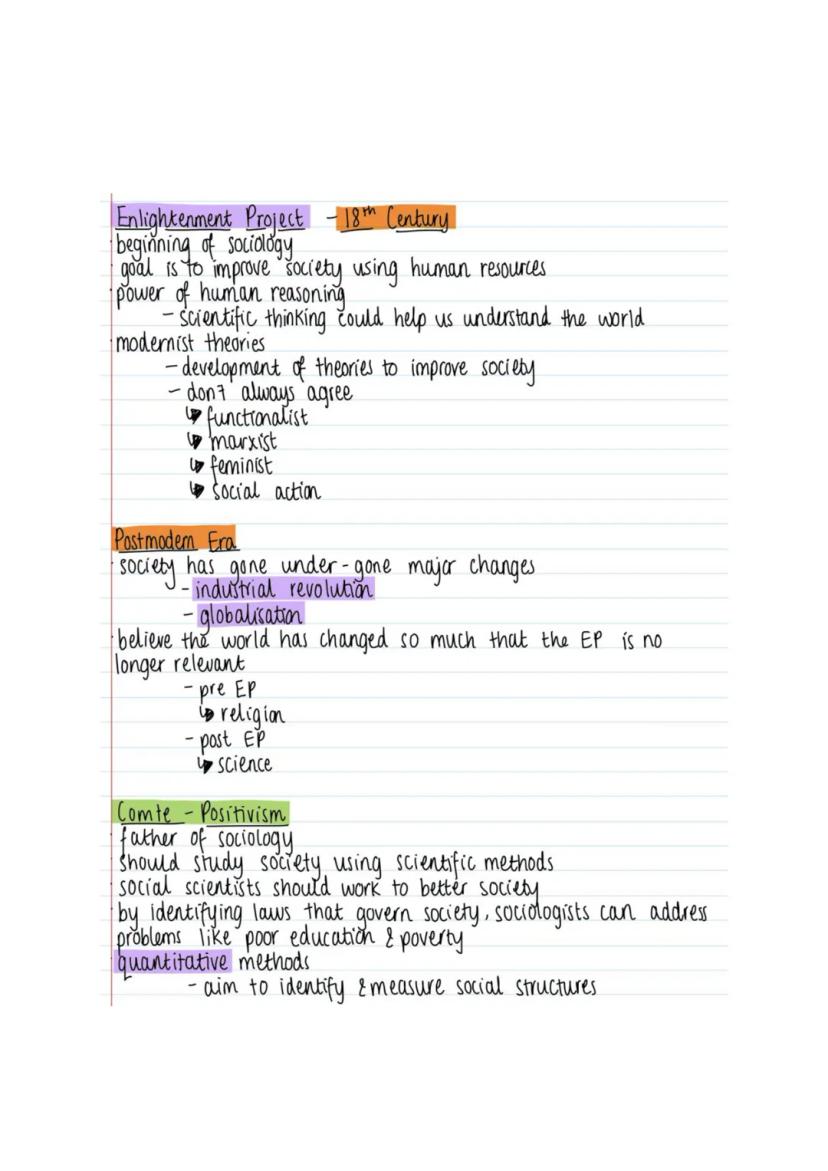 Enlightenment Project - 18th Century
beginning of sociology
goal is to improve society using human resources
power of human reasoning
- scientific thinking could help us understand the world
modernist theories
- development of theories to improve society
- don't always agree
↳ functionalist
↳ marxist
↳ feminist
↳ social action
Postmodern Era
society has gone under-gone major changes
- industrial revolution
- globalisation
believe the world has changed so much that the EP is no
longer relevant
- pre EP
↳ religion
- post EP
↳ science
Comte - Positivism
father of sociology
should study society using scientific methods
social scientists should work to better society
by identifying laws that govern society, sociologists can address
problems like poor education & poverty
quantitative methods
- aim to identify & measure social structures